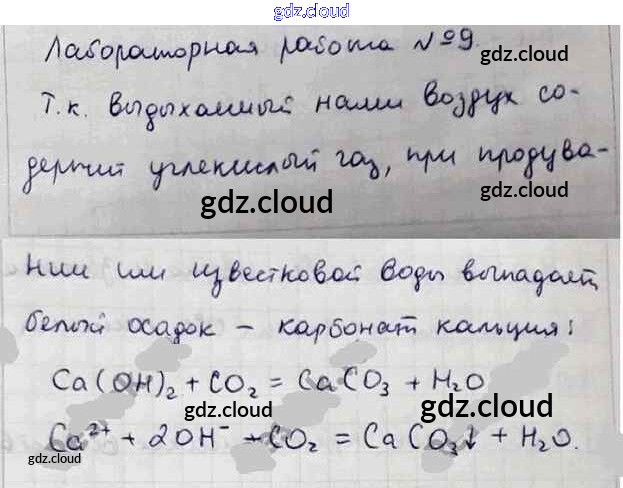 gdz.cloud
Лабораторная работа №9.
gdz.cloud
Т.к. выдыхаемый нами воздух со-
gdz.cloud
держит углекислый газ, при продува-
gdz.cloud
gdz.cloud
нии им известковой воды выпадает
белый осадок – карбонат кальция:
Ca(OH)₂ + CO₂ = CaCO₃ + H₂O
gdz.cloud
gdz.cloud
Ca²⁺ + 2OH⁻ + CO₂ = CaCO₃↓ + H₂O.
gdz.cloud
gdz.cloud